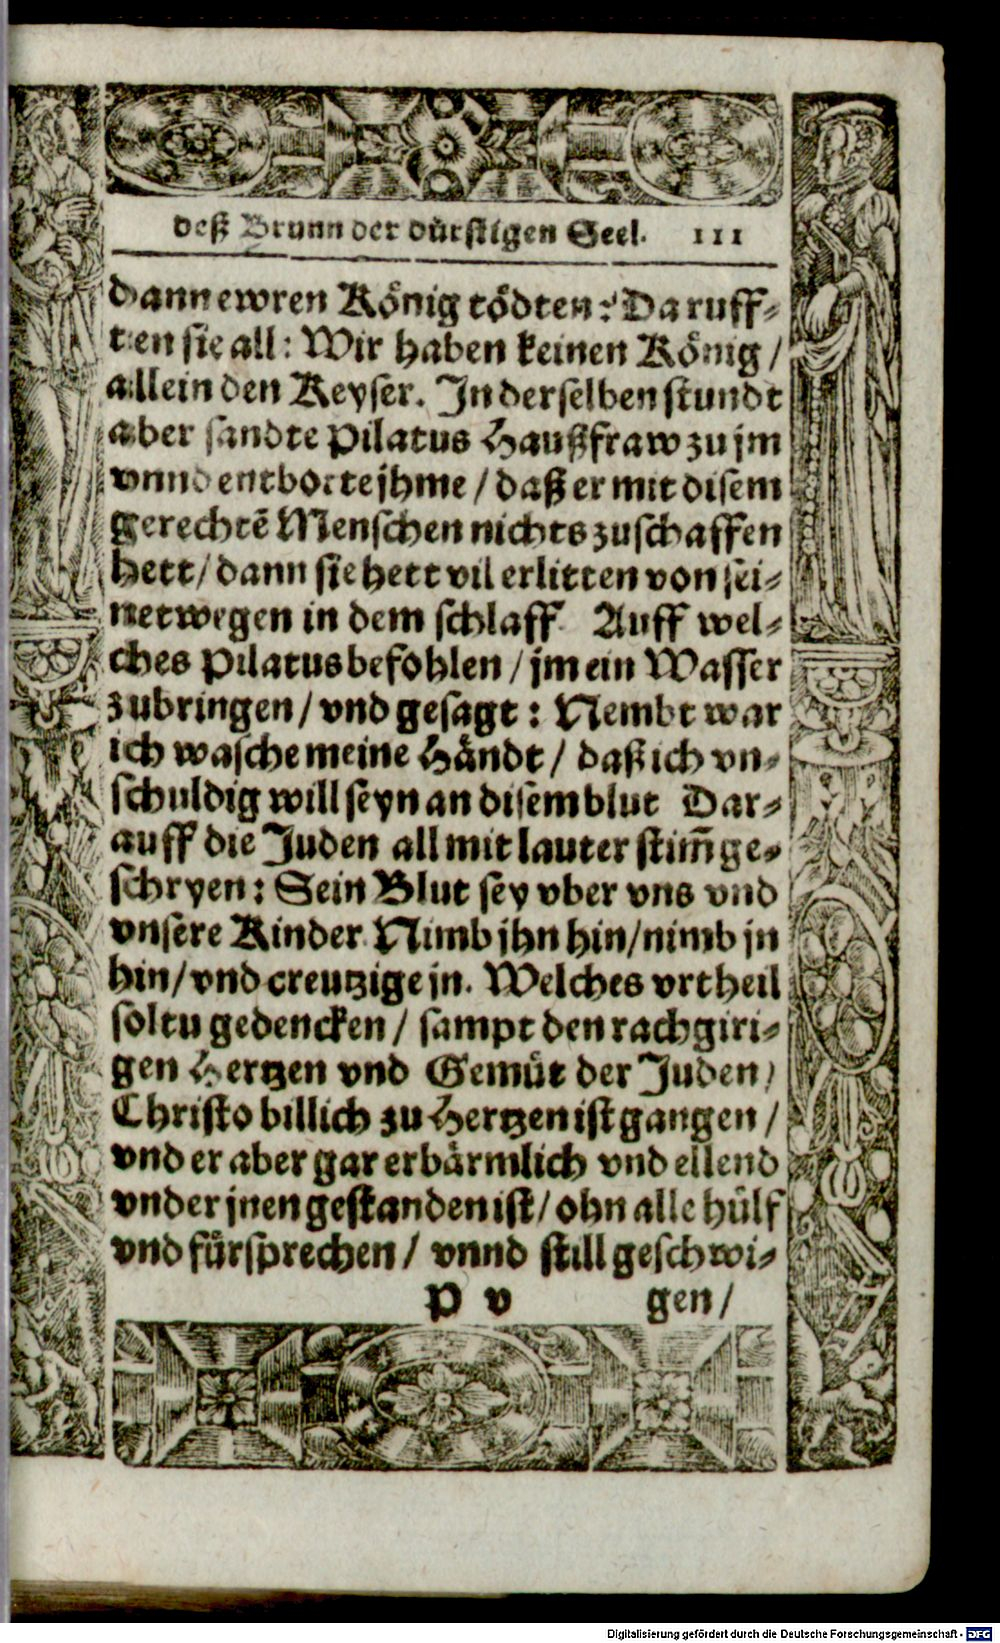 deß Brunn der dürstigen Seel. 111
dann ewren König tödten? Da ruff-
ten sie all: Wir haben keinen König /
allein den Keyser. In derselben stundt
aber sandte Pilatus Haußfraw zu jm
vnnd entbotte jhme / daß er mit disem
gerechtē Menschen nichts zuschaffen
hett / dann sie hett vil erlitten von sei-
netwegen in dem schlaff. Auff wel-
ches Pilatus befohlen / jm ein Wasser
zubringen / vnd gesagt: Nembt war
ich wasche meine Händt / daß ich vn-
schuldig will seyn an disem blut Dar-
auff die Juden all mit lauter stim̄ ge-
schryen: Sein Blut sey vber vns vnd
vnsere Kinder. Nimb jhn hin / nimb jn
hin / vnd creutzige jn. Welches vrtheil
soltu gedencken / sampt den rachgiri-
gen Hertzen vnd Gemüt der Juden /
Christo billich zu Hertzen ist gangen /
vnd er aber gar erbärmlich vnd ellend
vnder jnen gestanden ist / ohn alle hülf
vnd fürsprechen / vnnd still geschwi-
P v gen /
Digitalisierung gefördert durch die Deutsche Forschungsgemeinschaft - DFG